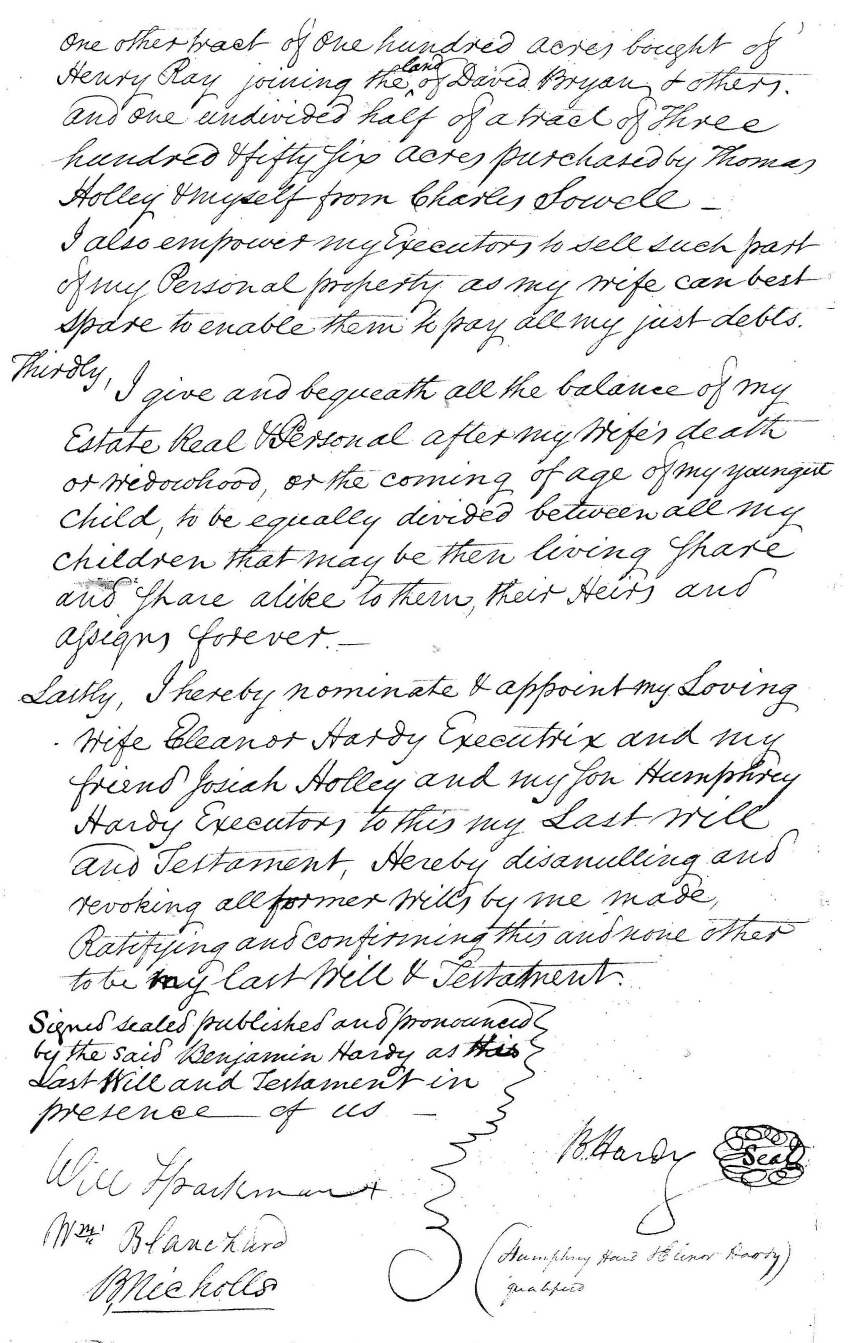 one other tract of one hundred acres bought of
Henry Ray joining the land of David Bryan & others.
and one undivided half of a tract of Three
hundred & fifty six acres purchased by Thomas
Holley & myself from Charles Sowell –
I also empower my Executors to sell such part
of my Personal property as my wife can best
spare to enable them to pay all my just debts.
Thirdly, I give and bequeath all the balance of my
Estate Real & Personal after my Wife's death
or widowhood, or the coming of age of my youngest
Child, to be equally divided between all my
children that may be then living Share
and Share alike to them, their Heirs and
assigns forever. –
Lastly, I hereby nominate & appoint my Loving
Wife Eleanor Hardy Executrix and my
friend Josiah Holley and my Son Humphrey
Hardy Executors to this my Last Will
and Testament, Hereby disanulling and
revoking all former Wills by me made,
Ratifying and confirming this and none other
to be my last Will & Testatment.
Signed sealed published and pronounced
by the said Benjamin Hardy as his
Last Will and Testament in
presence of us –
B. Hardy Seal
Will Sparkman
Wm. Blanchard
B. Nicholls
(Humphrey Hard & Elinor Hardy)
qualified